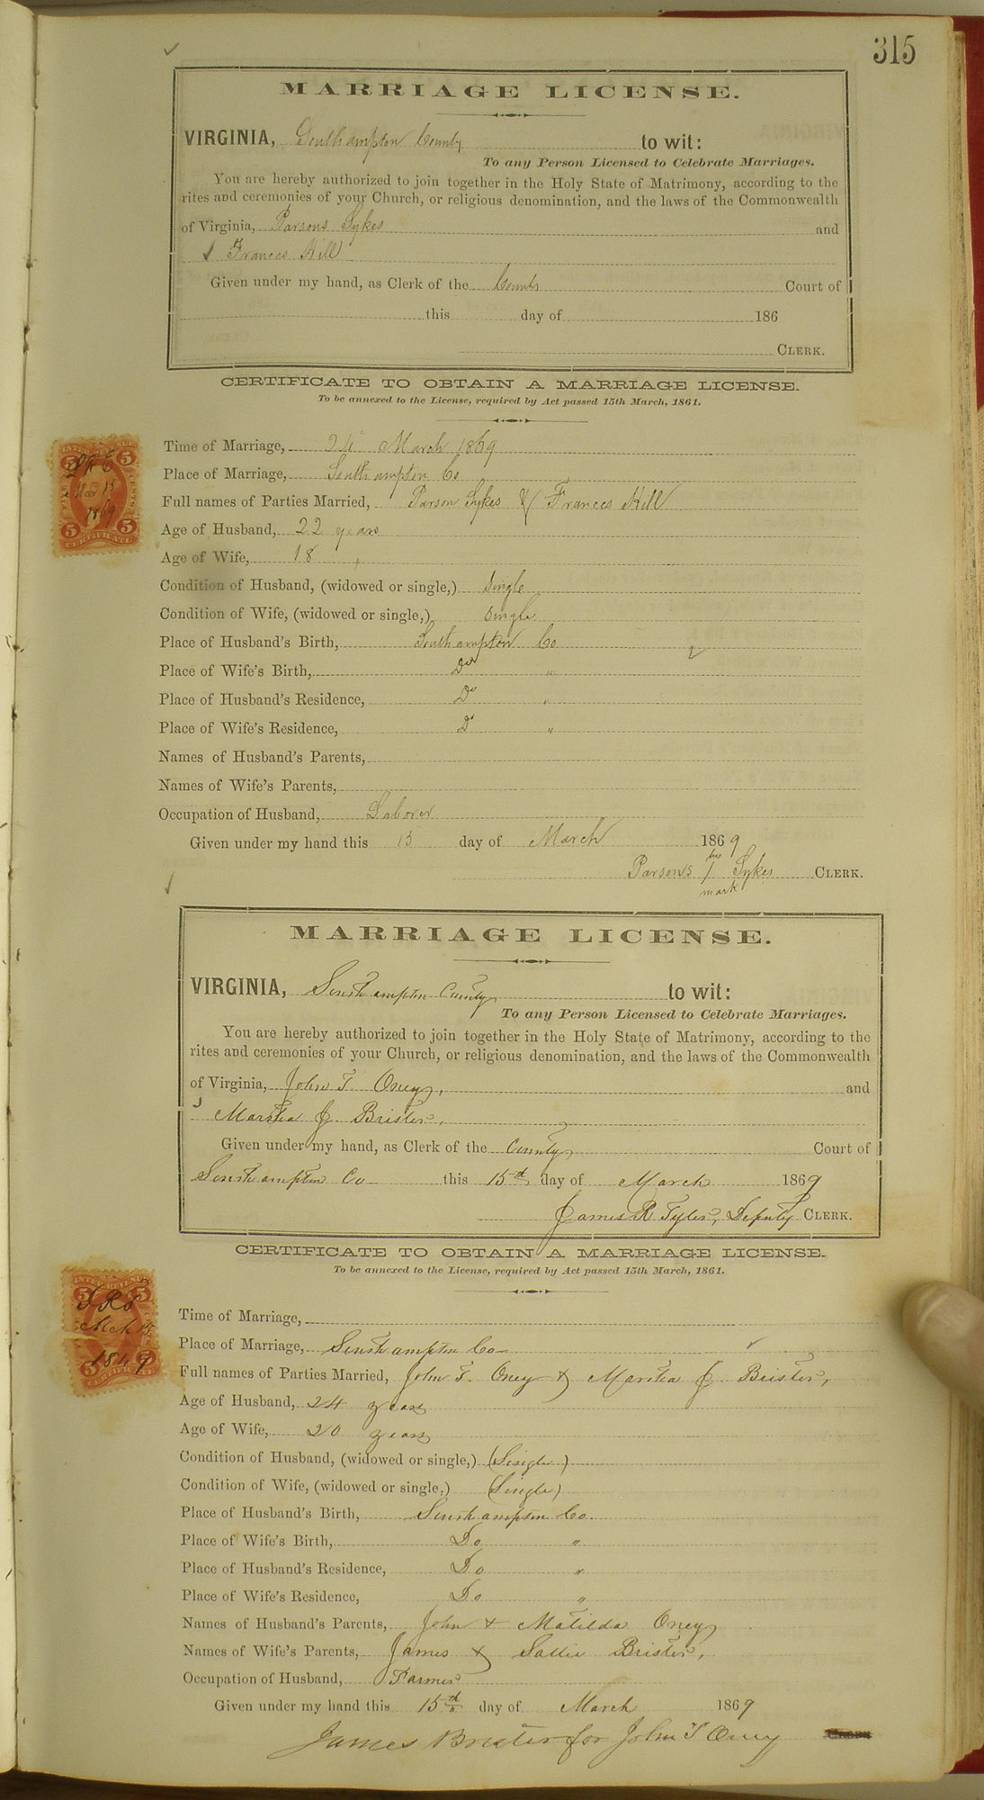 315
MARRIAGE LICENSE.
VIRGINIA, Southampton County to wit:
To any Person Licensed to Celebrate Marriages.
You are hereby authorized to join together in the Holy State of Matrimony, according to the
rites and ceremonies of your Church, or religious denomination, and the laws of the Commonwealth
of Virginia, Parsons Sykes and
Frances Hill
Given under my hand, as Clerk of the County Court of
this day of 186
CLERK.
CERTIFICATE TO OBTAIN A MARRIAGE LICENSE.
To be annexed to the License, required by Act passed 15th March, 1861.
Time of Marriage, March 1869
Place of Marriage, Southampton Co
Full names of Parties Married, Parson Sykes & Frances Hill
Age of Husband, 22 years
Age of Wife, 18 "
Condition of Husband, (widowed or single,) Single
Condition of Wife, (widowed or single,) Single
Place of Husband's Birth, Southampton Co
Place of Wife's Birth, Do "
Place of Husband's Residence, Do "
Place of Wife's Residence, Do "
Names of Husband's Parents,
Names of Wife's Parents,
Occupation of Husband, Laborer
Given under my hand this 15 day of March 1869
his
Parsons / Sykes CLERK.
mark
5 5
Mar 15
1869
5 5
CERTIFICATE
MARRIAGE LICENSE.
VIRGINIA, Southampton County to wit:
To any Person Licensed to Celebrate Marriages.
You are hereby authorized to join together in the Holy State of Matrimony, according to the
rites and ceremonies of your Church, or religious denomination, and the laws of the Commonwealth
of Virginia, John T. Oney, and
Martha J. Brister,
Given under my hand, as Clerk of the County Court of
Southampton Co this 15d day of March 1869
James R Tyler, Deputy CLERK.
CERTIFICATE TO OBTAIN A MARRIAGE LICENSE.
To be annexed to the License, required by Act passed 15th March, 1861.
Time of Marriage,
Place of Marriage, Southampton Co
Full names of Parties Married, John T. Oney & Martha J. Brister,
Age of Husband, 24 years
Age of Wife, 20 years
Condition of Husband, (widowed or single,) (Single)
Condition of Wife, (widowed or single,) (Single)
Place of Husband's Birth, Southampton Co.
Place of Wife's Birth, Do "
Place of Husband's Residence, Do "
Place of Wife's Residence, Do "
Names of Husband's Parents, John + Matilda Oney
Names of Wife's Parents, James & Sallie Brister,
Occupation of Husband, Farmer
Given under my hand this 15d day of March 1869
James Brister for John T Oney
5 5
Mch 15
1869
5 5
CERTIFICATE